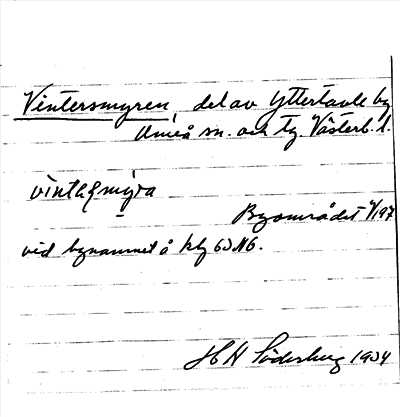 Vintersmyren, del av Yttertavle by
Umeå sn. och tg. Västerb. l.
Byområdet
vid bynamnet å kbl 63 N6.
H Söderberg 1934